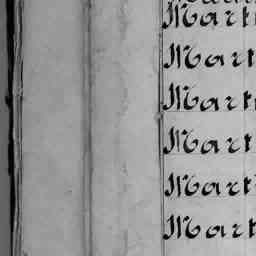 Mart
Mart
Mart
Mart
Mart
Mart